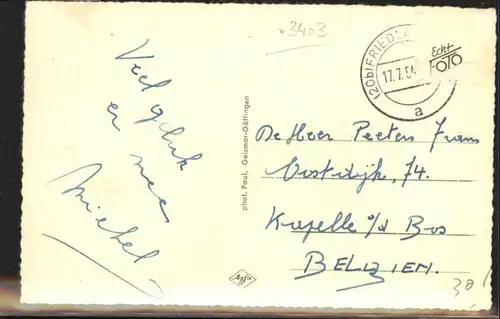 3403
(20b) FRIEDLA
17.7.54
a
Echt
FOTO
Veel geluk
er mee
Michel
phot. Paul, Geismar-Göttingen
De Heer Peeters Frans
Oostdijk, 74.
Kapelle o/d Bos
BELGIEN.
Agfa